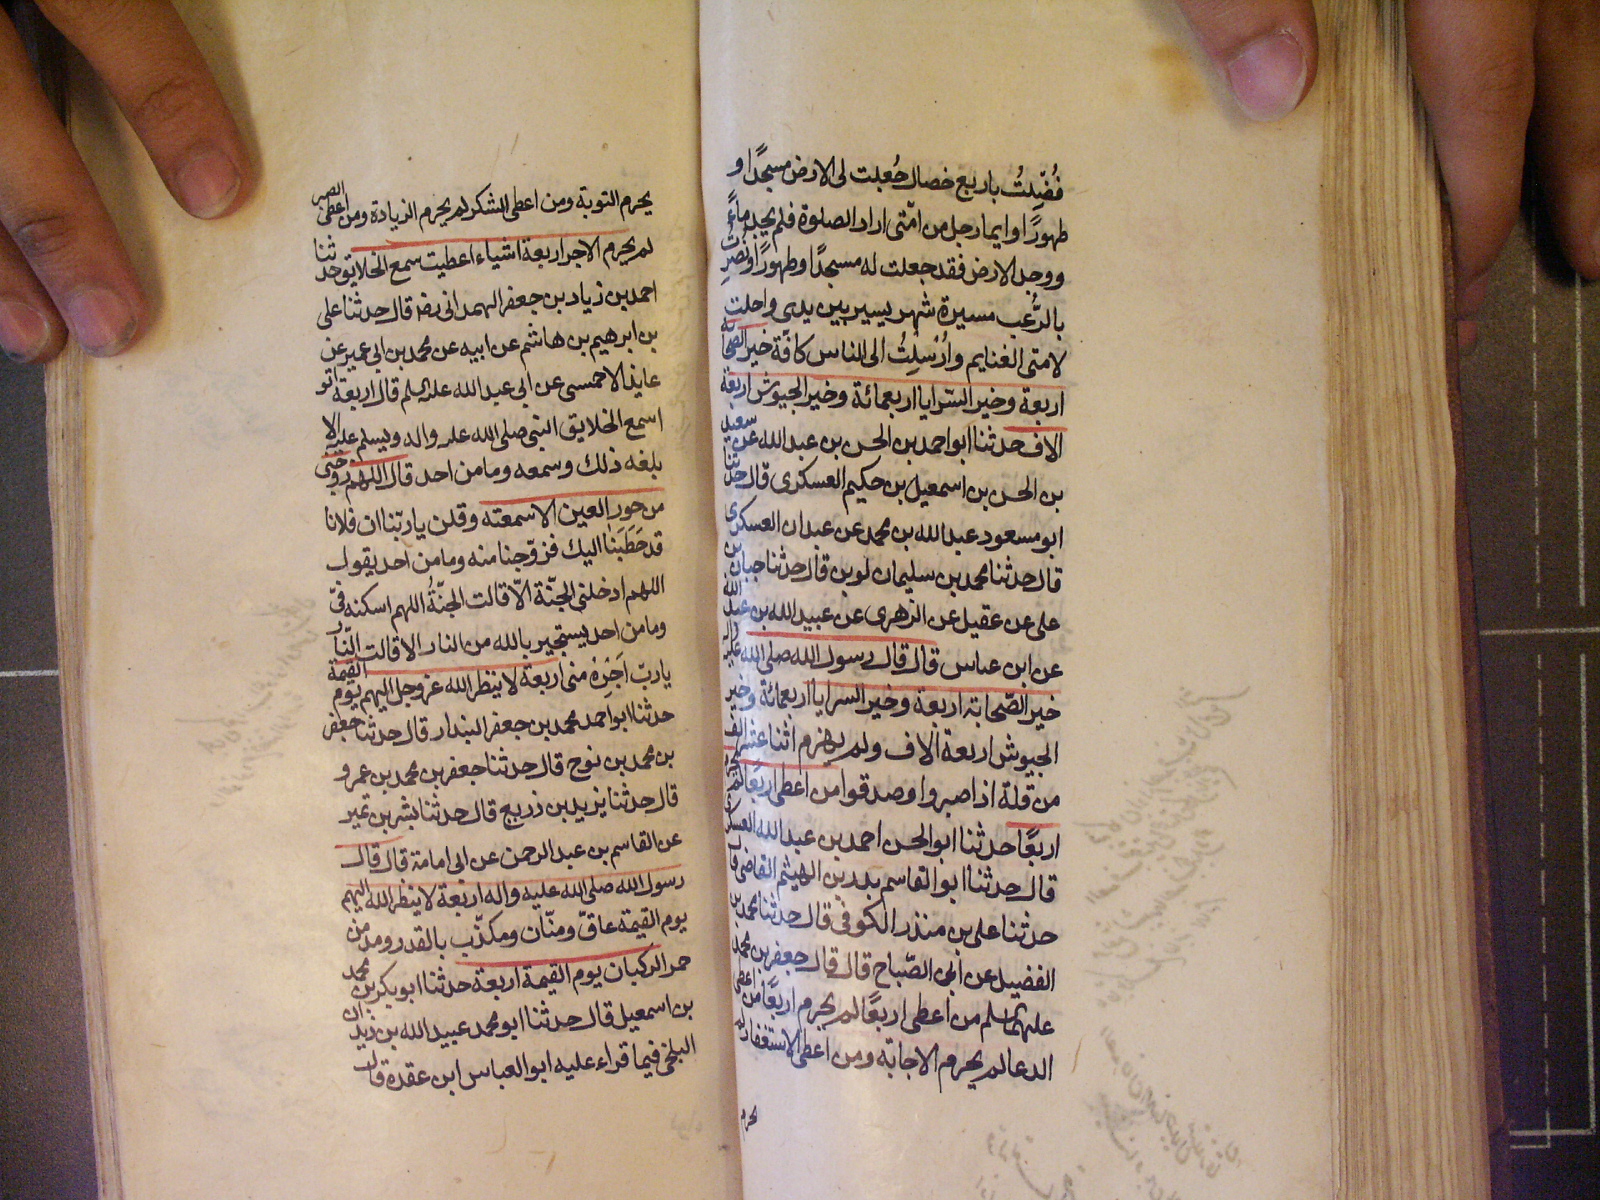 فُضِّلتُ باربع خصال جُعلت لی الارض مسجدًا و
طهورًا وایما رجل من امّتی اراد الصلوة فلم یجد ماءً
ووجد الارض فقد جعلت له مسجدًا وطهورًا ونُصِرتُ
بالرُّعب مسیرة شهر یسیر بین یدی واحلت
لامتی الغنایم واُرسِلتُ الی الناس کافّة خیر الصحابة
اربعة وخیر السّرایا اربعمائة وخیر الجیوش اربعة
الاف حدثنا ابو احمد بن الحسن بن عبد الله عن سعید
بن الحسن بن اسمعیل بن حکیم العسکری قال حدثنا
ابو مسعود عبد الله بن محمد عن عبدان العسکری
قال حدثنا محمد بن سلیمان لوین قال حدثنا حبان بن
علی عن عقیل عن الزهری عن عبید الله بن عبد الله
عن ابن عباس قال قال رسول الله صلی الله علیه واله
خیر الصّحابة اربعة وخیر السرایا اربعمائة وخیر
الجیوش اربعة الاف ولم یهزم اثنا عشر الف
من قلة اذا صبروا وصدقوا من اعطی اربعًا لم یحرم
اربعًا حدثنا ابو الحسن احمد بن عبد الله العسکری
قال حدثنا ابو القاسم بدر بن الهیثم القاضی قال
حدثنا علی بن منذر الکوفی قال حدثنا محمد بن
الفضیل عن ابی الصّباح قال قال جعفر بن محمد
علیهما السلم من اعطی اربعًا لم یحرم اربعًا من اعطی
الدعا لم یحرم الاجابة ومن اعطی الاستغفار لم
یحرم
یحرم التوبة ومن اعطی الشکر لم یحرم الزیادة ومن اعطی الصبر
لم یحرم الاجر اربعة اشیاء اعطیت سمع الخلایق حدثنا
احمد بن زیاد بن جعفر الهمدانی رضه قال حدثنا علی
بن ابرهیم بن هاشم عن ابیه عن محمد بن ابی عمیر عن
عایذ الاحمسی عن ابی عبد الله علیه السلم قال اربعة اتو
اسمع الخلایق النبی صلی الله علیه واله ویسلم علیه الا
بلغه ذلک وسمعه وما من احد قال اللهم زوجنی
من حور العین الا سمعته وقلن یا ربّنا ان فلانا
قد خَطَبَنا الیک فزوّجنا منه وما من احد یقول
اللهم ادخلنی الجنّة الّا قالت الجنّةُ اللهم اسکنه فیّ
وما من احد یستجیر بالله من النار الا قالت النّار
یا ربّ اَجِرْهُ منی اربعة لا ینظر الله عز وجل الیهم یوم القیمة
حدثنا ابو احمد محمد بن جعفر البندار قال حدثنا جعفر
بن محمد بن نوح قال حدثنا جعفر بن محمد بن عمرو
قال حدثنا یزید بن زریع قال حدثنا بشر بن نمیر
عن القاسم بن عبد الرحمن عن ابی امامة قال قال
رسول الله صلی الله علیه واله اربعة لا ینظر الله الیهم
یوم القیمة عاقّ ومنّان ومکذّب بالقدر ومدمن
خمر الرکبان یوم القیمة اربعة حدثنا ابو بکر بن محمد
بن اسمعیل قال حدثنا ابو محمد عبید الله بن زیدان
البلخی فیما قراء علیه ابو العباس ابن عقدة قال